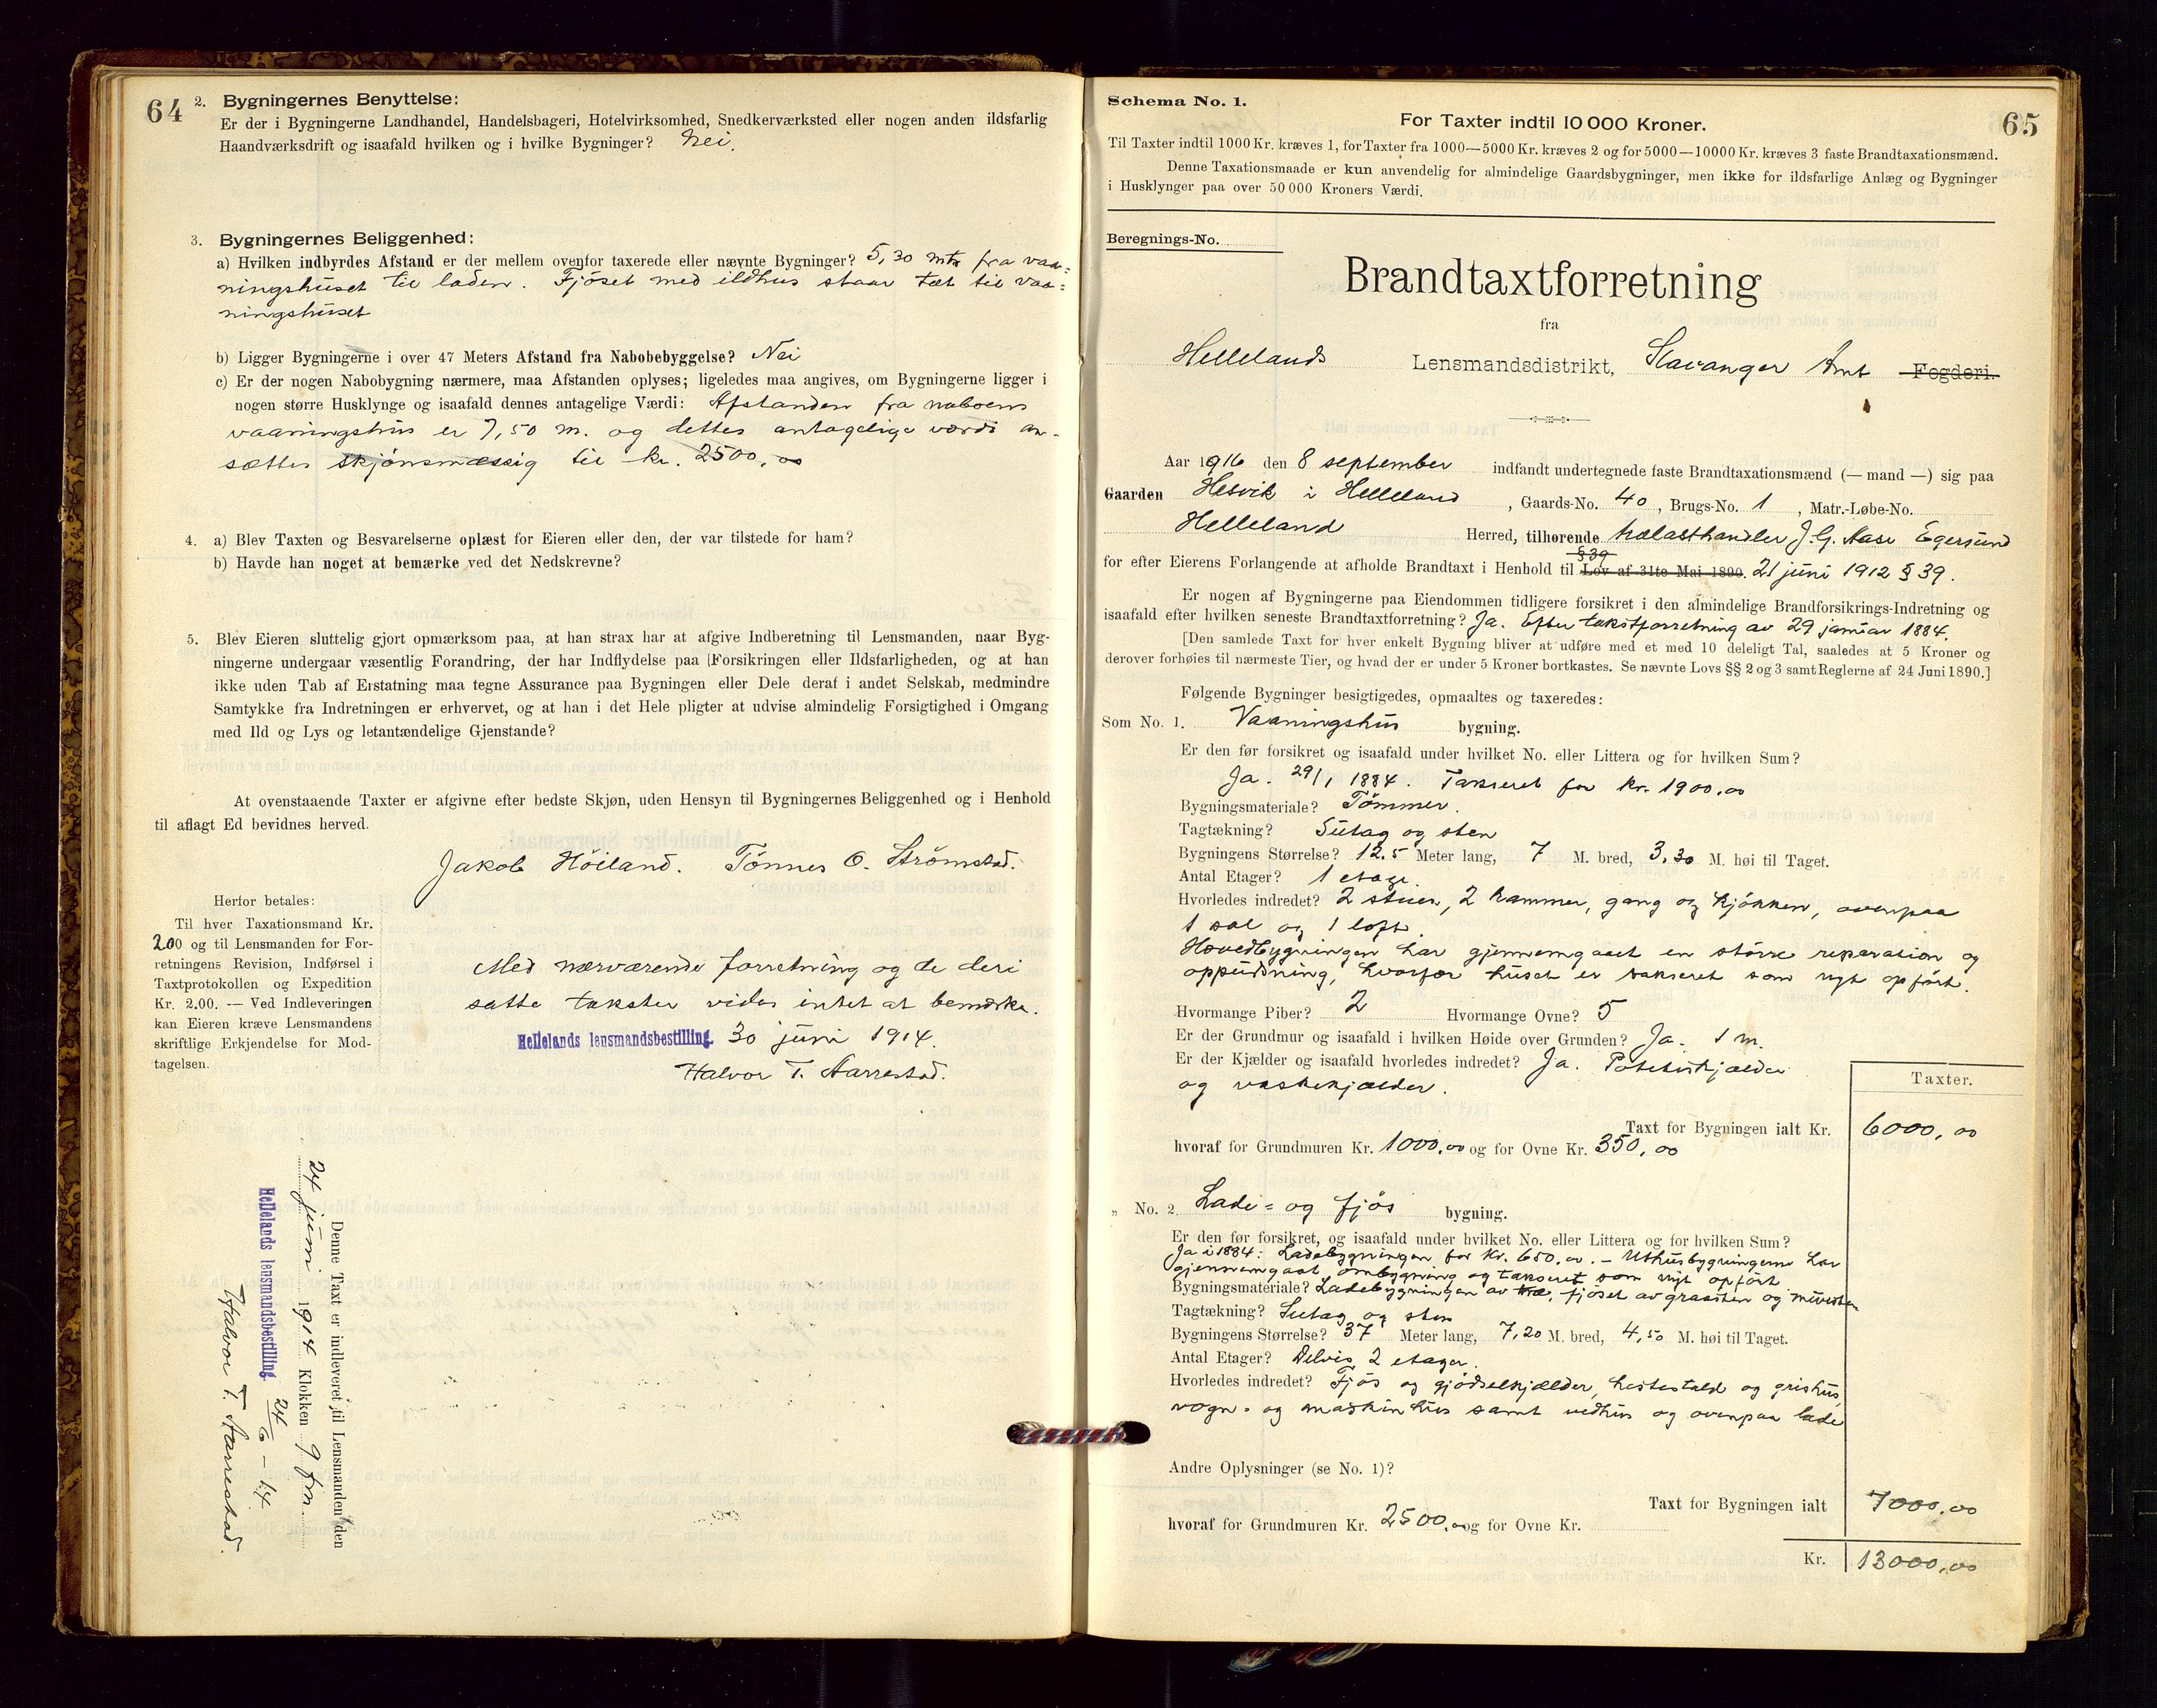 64
2. Bygningernes Benyttelse:
Er der i Bygningerne Landhandel, Handelsbageri, Hotelvirksomhed, Snedkerværksted eller nogen anden ildsfarlig
Haandværksdrift og isaafald hvilken og i hvilke Bygninger? Nei.
3. Bygningernes Beliggenhed:
a) Hvilken indbyrdes Afstand er der mellem ovenfor taxerede eller nævnte Bygninger? 5,30 mtr fra vaa=
ningshuset til laden. Fjöset med ildhus staar tæt til vaa=
ningshuset
b) Ligger Bygningerne i over 47 Meters Afstand fra Nabobebyggelse? Nei
c) Er der nogen Nabobygning nærmere, maa Afstanden oplyses; ligeledes maa angives, om Bygningerne ligger i
nogen større Husklynge og isaafald dennes antagelige Værdi: Afstanden fra naboens
vaaningshus er 7,50 m. og dettes antagelige værdi an-
sættes skjönsmæssig til kr. 2500,00
4. a) Blev Taxten og Besvarelserne oplæst for Eieren eller den, der var tilstede for ham?
b) Havde han noget at bemærke ved det Nedskrevne?
5. Blev Eieren sluttelig gjort opmærksom paa, at han strax har at afgive Indberetning til Lensmanden, naar Byg-
ningerne undergaar væsentlig Forandring, der har Indflydelse paa Forsikringen eller Ildsfarligheden, og at han
ikke uden Tab af Erstatning maa tegne Assurance paa Bygningen eller Dele deraf i andet Selskab, medmindre
Samtykke fra Indretningen er erhvervet, og at han i det Hele pligter at udvise almindelig Forsigtighed i Omgang
med Ild og Lys og letantændelige Gjenstande?
At ovenstaaende Taxter er afgivne efter bedste Skjøn, uden Hensyn til Bygningernes Beliggenhed og i Henhold
til aflagt Ed bevidnes herved.
Jakob Höiland. Tönnes O. Strömstad.
Herfor betales:
Til hver Taxationsmand Kr.
2.00 og til Lensmanden for For-
retningens Revision, Indførsel i
Taxtprotokollen og Expedition
Kr. 2.00. — Ved Indleveringen
kan Eieren kræve Lensmandens
skriftlige Erkjendelse for Mod-
tagelsen.
Med nærværende forretning og de deri
satte takster vides intet at bemærke.
Hellelands lensmandsbestilling. 30 juni 1914.
Halvor T. Aarrestad.
Denne Taxt er indleveret til Lensmanden den
24 juni 1914 Klokken 9 fm.
Hellelands lensmandsbestilling. 24/6 - 14
Halvor T. Aarrestad.
65
Schema No. 1.
For Taxter indtil 10 000 Kroner.
Til Taxter indtil 1000 Kr. kræves 1, for Taxter fra 1000—5000 Kr. kræves 2 og for 5000—10000 Kr. kræves 3 faste Brandtaxationsmænd.
Denne Taxationsmaade er kun anvendelig for almindelige Gaardsbygninger, men ikke for ildsfarlige Anlæg og Bygninger
i Husklynger paa over 50 000 Kroners Værdi.
Beregnings-No.
Brandtaxtforretning
fra
Hellelands Lensmandsdistrikt, Stavanger Amt Fogderi.
Aar 1916 den 8 september indfandt undertegnede faste Brandtaxationsmænd (— mand —) sig paa
Gaarden Hesvik i Helleland, Gaards-No. 40, Brugs-No. 1, Matr.-Løbe-No.
Helleland Herred, tilhørende trælasthandler J. G. Aase Egersund
§ 39
for efter Eierens Forlangende at afholde Brandtaxt i Henhold til Lov af 31te Mai 1890. 21 juni 1912 § 39.
Er nogen af Bygningerne paa Eiendommen tidligere forsikret i den almindelige Brandforsikrings-Indretning og
isaafald efter hvilken seneste Brandtaxtforretning? Ja. Efter takstforretning av 29 januar 1884.
[Den samlede Taxt for hver enkelt Bygning bliver at udføre med et med 10 deleligt Tal, saaledes at 5 Kroner og
derover forhøies til nærmeste Tier, og hvad der er under 5 Kroner bortkastes. Se nævnte Lovs §§ 2 og 3 samt Reglerne af 24 Juni 1890.]
Følgende Bygninger besigtigedes, opmaaltes og taxeredes:
Som No. 1. Vaaningshus bygning.
Er den før forsikret og isaafald under hvilket No. eller Littera og for hvilken Sum?
Ja. 29/1 1884. Takseret for kr. 1900,00
Bygningsmateriale? Tömmer.
Tagtækning? Sutag og sten
Bygningens Størrelse? 12.5 Meter lang, 7 M. bred, 3,30 M. høi til Taget.
Antal Etager? 1 etage.
Hvorledes indredet? 2 stuer, 2 kammer, gang og kjökken, ovenpaa
1 sal og 1 loft.
Hovedbygningen har gjennemgaaet en större reparation og
oppudsning, hvorfor huset er takseret som nyt opfört.
Hvormange Piber? 2 Hvormange Ovne? 5
Er der Grundmur og isaafald i hvilken Høide over Grunden? Ja. 1 m.
Er der Kjælder og isaafald hvorledes indredet? Ja. Potetuskjælder
og vaskekjælder.
Taxter.
Taxt for Bygningen ialt Kr. 6000,00
hvoraf for Grundmuren Kr. 1000,00 og for Ovne Kr. 350,00
" No. 2. Lade= og fjös bygning.
Er den før forsikret, og isaafald under hvilket No. eller Littera og for hvilken Sum?
Ja i 1884: Ladebygningen for kr. 650.00. - Uthusbygningerne har
gjennemgaat ombygning og takseret som nyt opfört
Bygningsmateriale? Ladebygningen av træ, fjöset av graasten og mursten
Tagtækning? Sutag og sten
Bygningens Størrelse? 37 Meter lang, 7,20 M. bred, 4,50 M. høi til Taget.
Antal Etager? Delvis 2 etager.
Hvorledes indredet? Fjös og gjödselkjælder, hestestald og grishus,
vogn= og maskinhus samt vedhus og ovenpaa lade
Andre Oplysninger (se No. 1)?
Taxt for Bygningen ialt 7000,00
hvoraf for Grundmuren Kr. 2500,00 og for Ovne Kr.
Kr. 13000,00